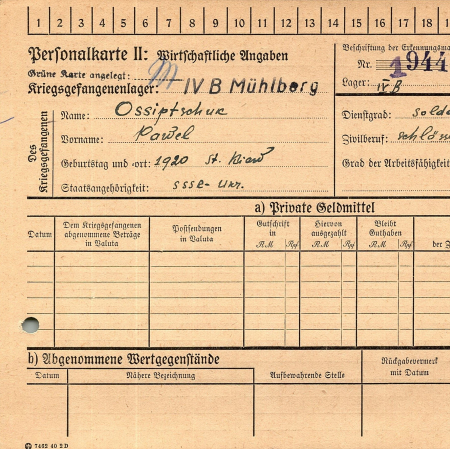 1 2 3 4 5 6 7 8 9 10 11 12 13 14 15 16 17 18
Personalkarte II: Wirtschaftliche Angaben
Beschriftung der Erkennungsma
Grüne Karte angelegt:
Nr. 1944
Kriegsgefangenenlager: IV B Mühlberg
Lager: IV B
Des Kriegsgefangenen
Name: Ossiptschuk
Dienstgrad: Solda
Vorname: Pawel
Zivilberuf: Schlos
Geburtstag und -ort: 1920 St. Kiew
Grad der Arbeitsfähigkeit
Staatsangehörigkeit: SSR- Ukr.
a) Private Geldmittel
Datum
Dem Kriegsgefangenen abgenommene Beträge in Valuta
Postsendungen in Valuta
Gutschrift in
RM Rpf
Hiervon ausgezahlt
RM Rpf
Bleibt Guthaben
RM Rpf
der Z
b) Abgenommene Wertgegenstände
Datum
Nähere Bezeichnung
Aufbewahrende Stelle
Rückgabevermerk mit Datum
7462 40 2 D